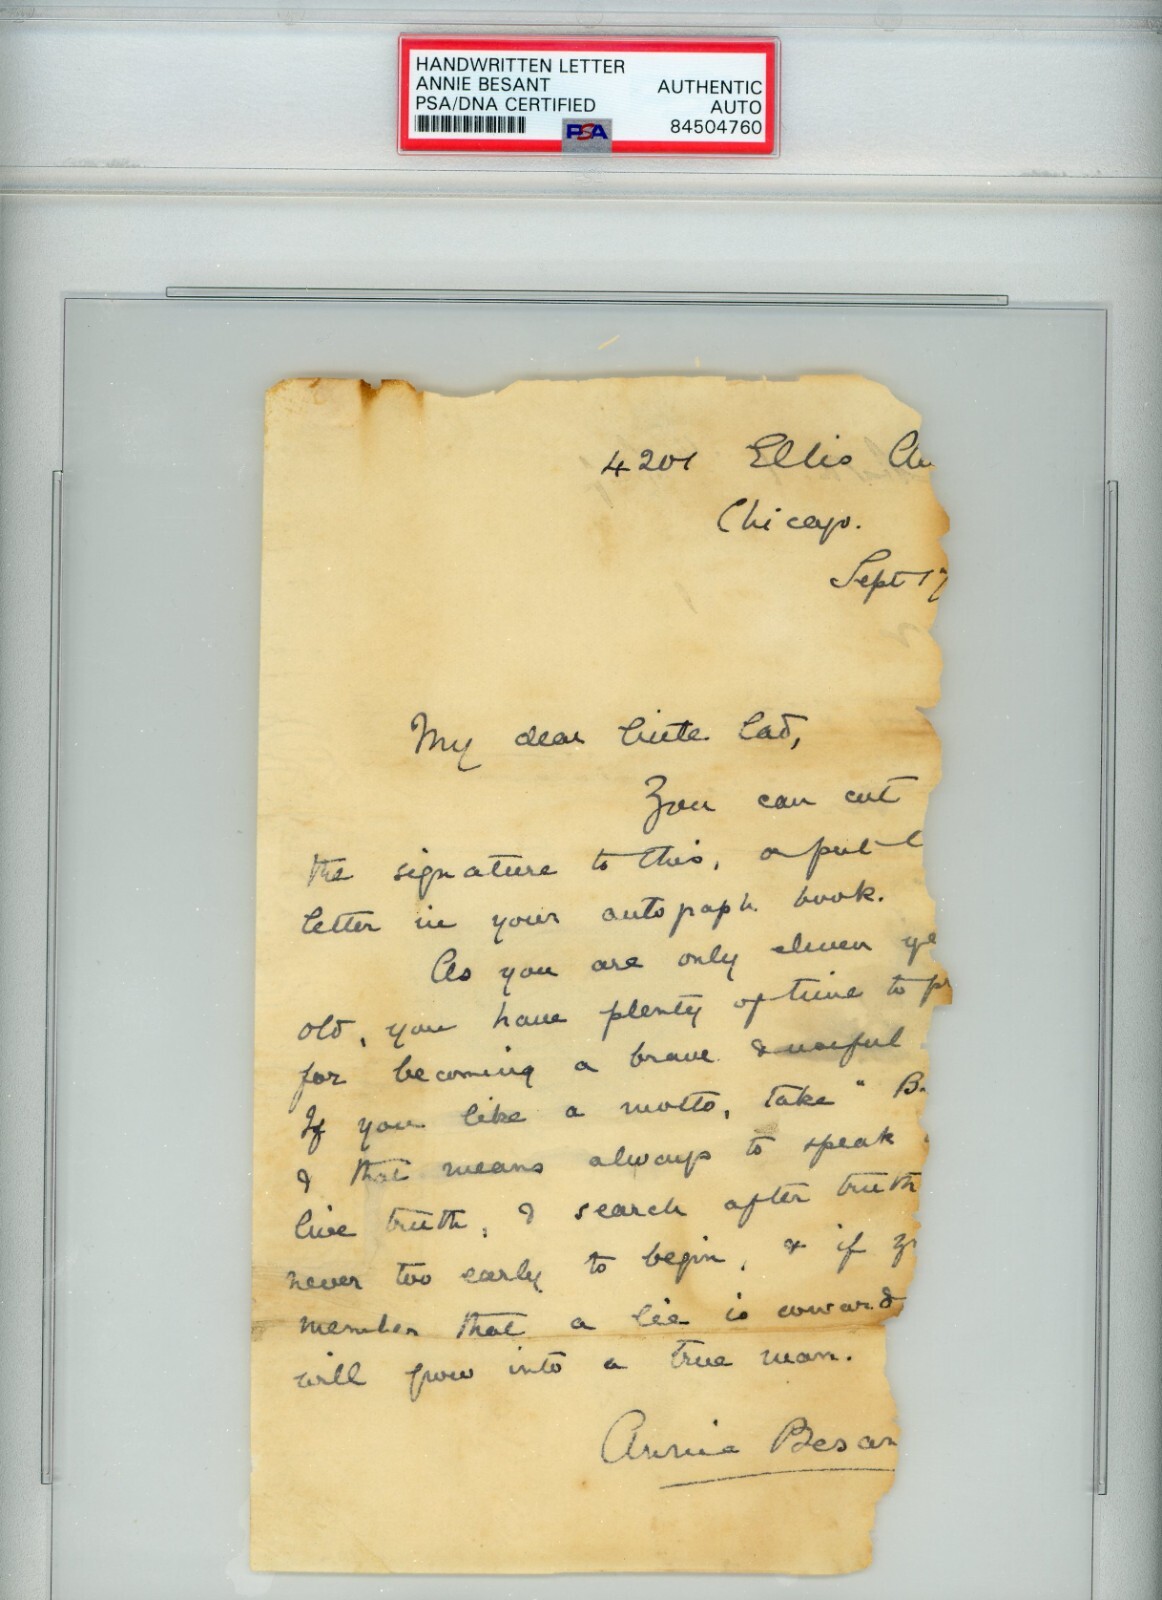 HANDWRITTEN LETTER
ANNIE BESANT
PSA/DNA CERTIFIED
AUTHENTIC
AUTO
84504760
PSA
4201 Ellis Av
Chicago.
Sept 17
My dear little lad,
You can cut
the signature to this, or put t
letter in your autograph book.
As you are only eleven ye
old, you have plenty of time to pr
for becoming a brave & useful
If you like a motto, take "B
& that means always to speak
live truth, & search after truth
never too early to begin, & if yo
member that a lie is coward
will grow into a true man.
Annie Besan